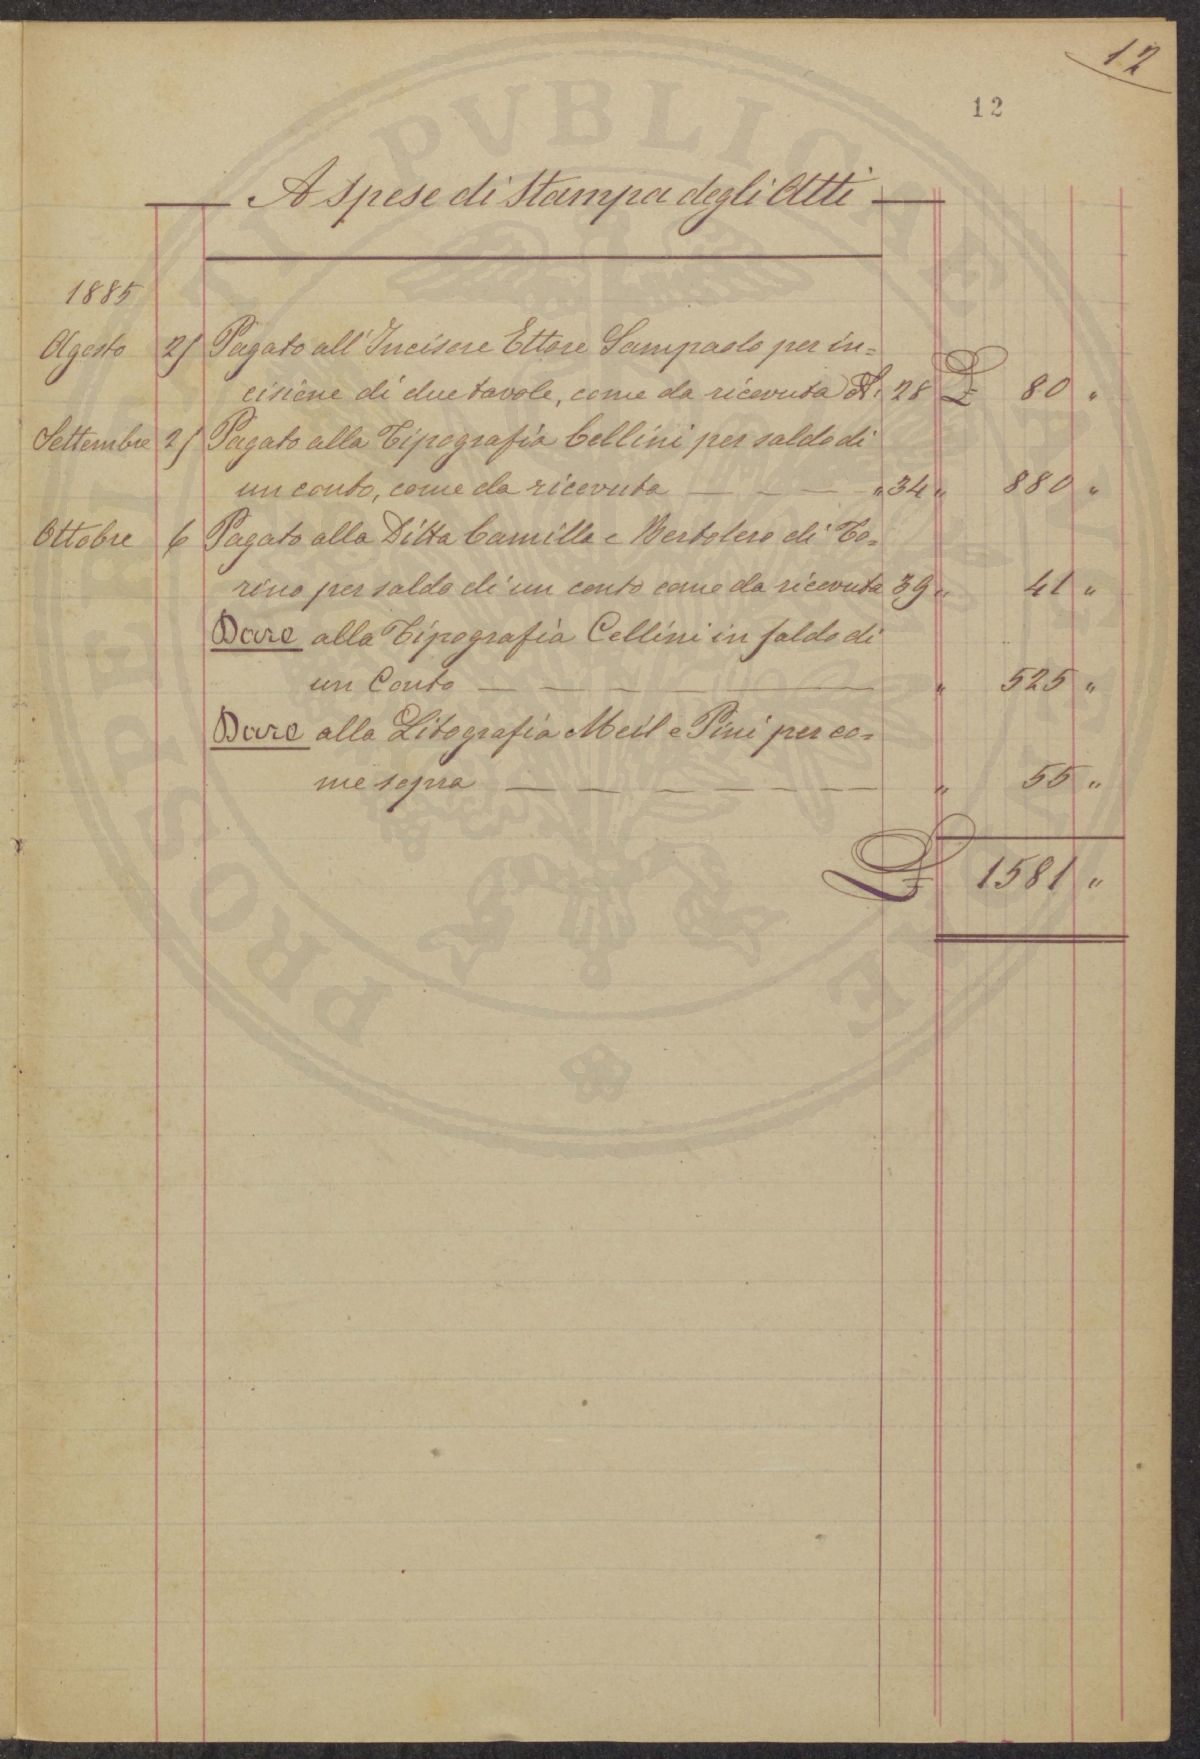 12
12
A Spese di Stampa degli Atti
1885
Agosto 21 Pagato all'Incisore Ettore Sampaolo per in=
cisione di due tavole, come da ricevuta N. 28 £ 80 "
Settembre 21 Pagato alla Tipografia Cellini per saldo di
un conto, come da ricevuta — — — — " 34 " 880 "
Ottobre 6 Pagato alla Ditta Camilla e Bertolero di To=
rino per saldo di un conto come da ricevuta 39 " 41 "
Dare alla Tipografia Cellini in saldo di
un Conto — — — — — " 525 "
Dare alla Litografia e Pini per co=
me sopra — — — — — — — — " 55 "
£ 1581 "
PROSPERITATI PVBLICAE